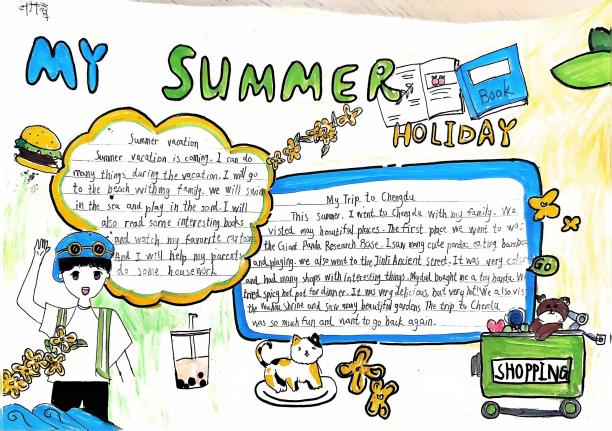 MY SUMMER
HOLIDAY
Book
Summer vacation
Summer vacation is coming. I can do
many things during the vacation. I will go
to the beach with my family. we will swim
in the sea and play in the sand. I will
also read some interesting books
and watch my favorite cartoons
And I will help my parents
do some housework
My Trip to Chengdu
This Summer, I went to Chengdu with my family. We
visited may beautiful places. The first place we went to was
the Giant Panda Research Base. I saw many cute pandas eating bamboo
and playing. we also went to the Jinli Ancient Street. It was very
and had many shops with interesting things. My dad bought me a toy panda. We
tried spicy hot pot for dinner. It was very delicious, but very hot! We also
the Wuhou Shrine and saw many beautiful gardens The trip to Chengdu
was so much fun and I want to go back again.
GO
SHOPPING